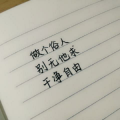 做个俗人
别无他求
干净自由